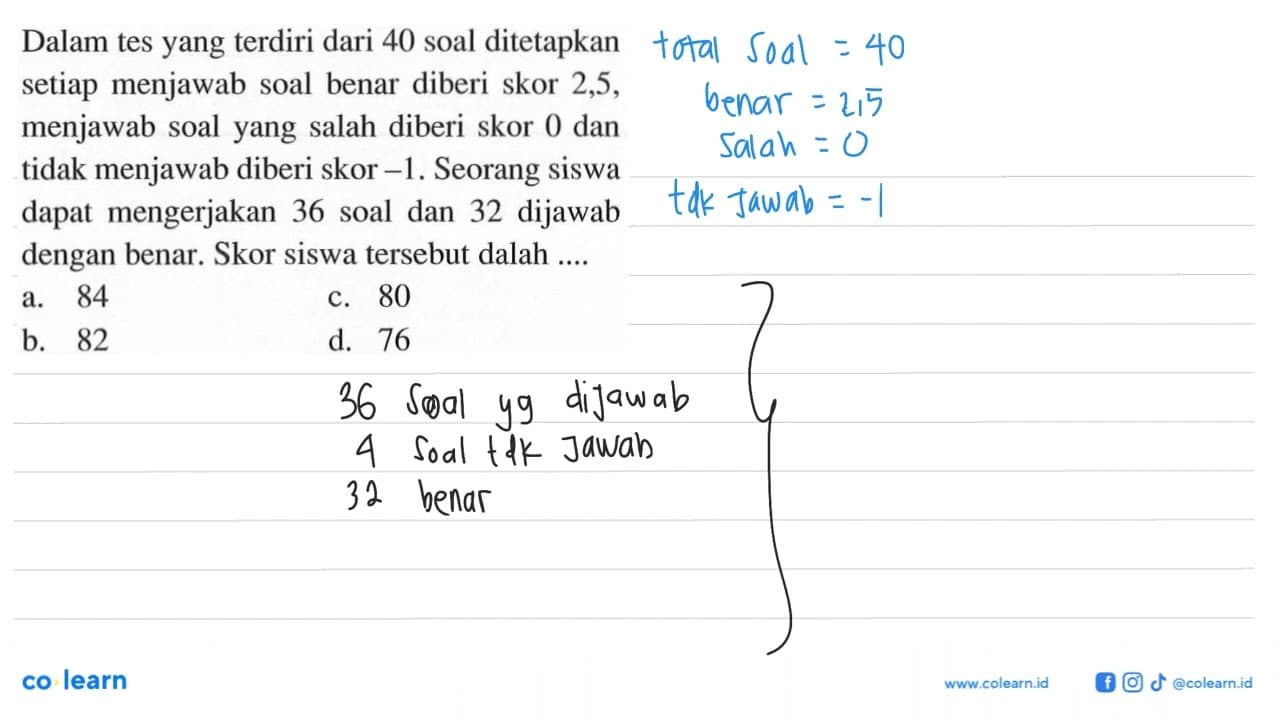 Dalam tes yang terdiri dari 40 soal ditetapkan
setiap menjawab soal benar diberi skor 2,5,
menjawab soal yang salah diberi skor 0 dan
tidak menjawab diberi skor –1. Seorang siswa
dapat mengerjakan 36 soal dan 32 dijawab
dengan benar. Skor siswa tersebut dalah ....
a. 84 c. 80
b. 82 d. 76
total soal = 40
benar = 2,5
salah = 0
tdk Jawab = -1
36 soal yg dijawab
4 soal tdk Jawab
32 benar
co learn
www.colearn.id @colearn.id